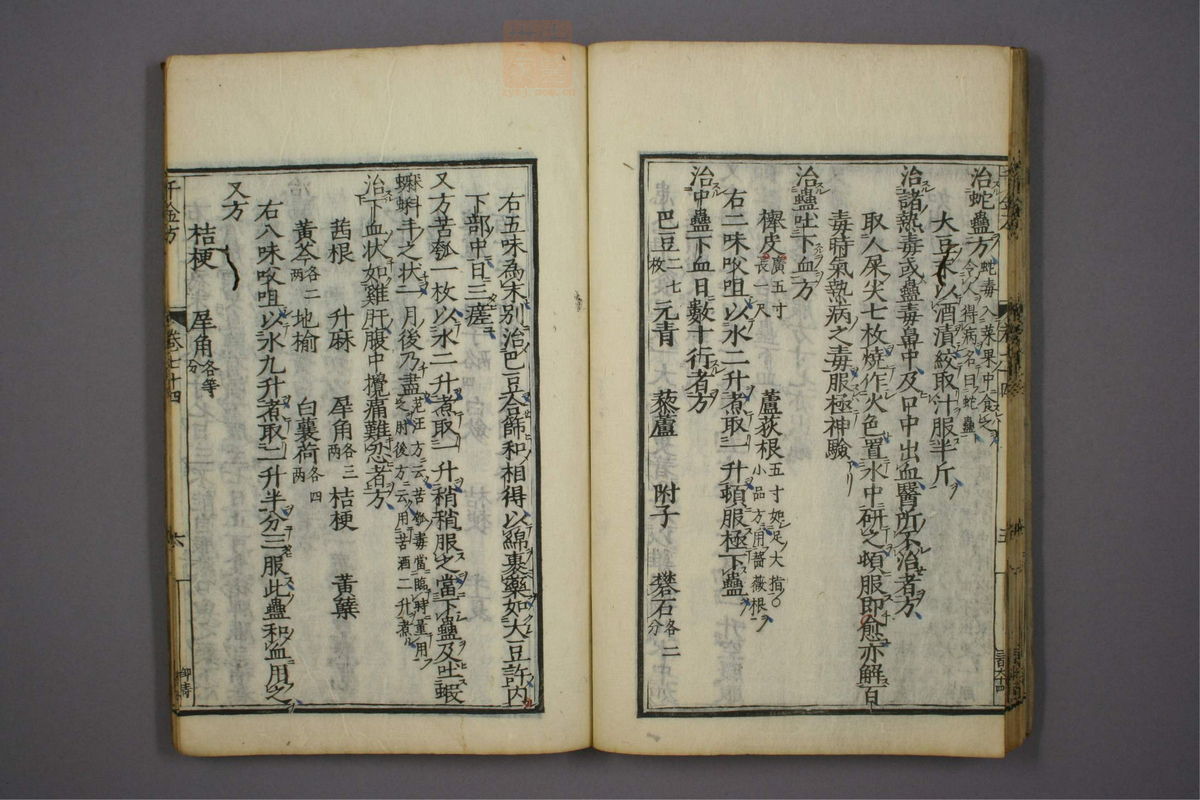 治蛇蠱方蛇毒入菜果中食之令人得病名曰蛇蠱
大豆末以酒漬絞取汁服半斤
治諸熱毒或蠱毒鼻中及口中出血醫所不治者方
取人屎尖七枚燒作火色置水中研之頓服即愈亦解百
毒時氣熱病之毒服極神驗
治蠱吐下血方
櫸皮廣五寸長一尺 蘆荻根五寸如足大指小品方用薔薇根
右二味㕮咀以水二升煮取一升頓服極下蠱
治中蠱下血日數十行者方
巴豆二七枚 元青 藜蘆 附子 礬石各二分
右五味為末別治巴豆合篩和相得以綿裹藥如大豆許内
下部中日三瘥
又方苦瓠一枚以水二升煮取一升稍稍服之當下蠱及吐蝦
蟇蝌蚪之状一月後乃盡范汪方云苦瓠毒當臨時量用之肘後方云用苦酒二升煮
治下血状如雞肝腹中攪痛難忍者方
茜根 升麻 犀角各三兩 桔梗 黃蘗
黃芩各二兩 地榆 白蘘荷各四兩
右八味㕮咀以水九升煮取二升半分三服此蠱和血用之
又方
桔梗 犀角各等分
千金方 卷七十四 六